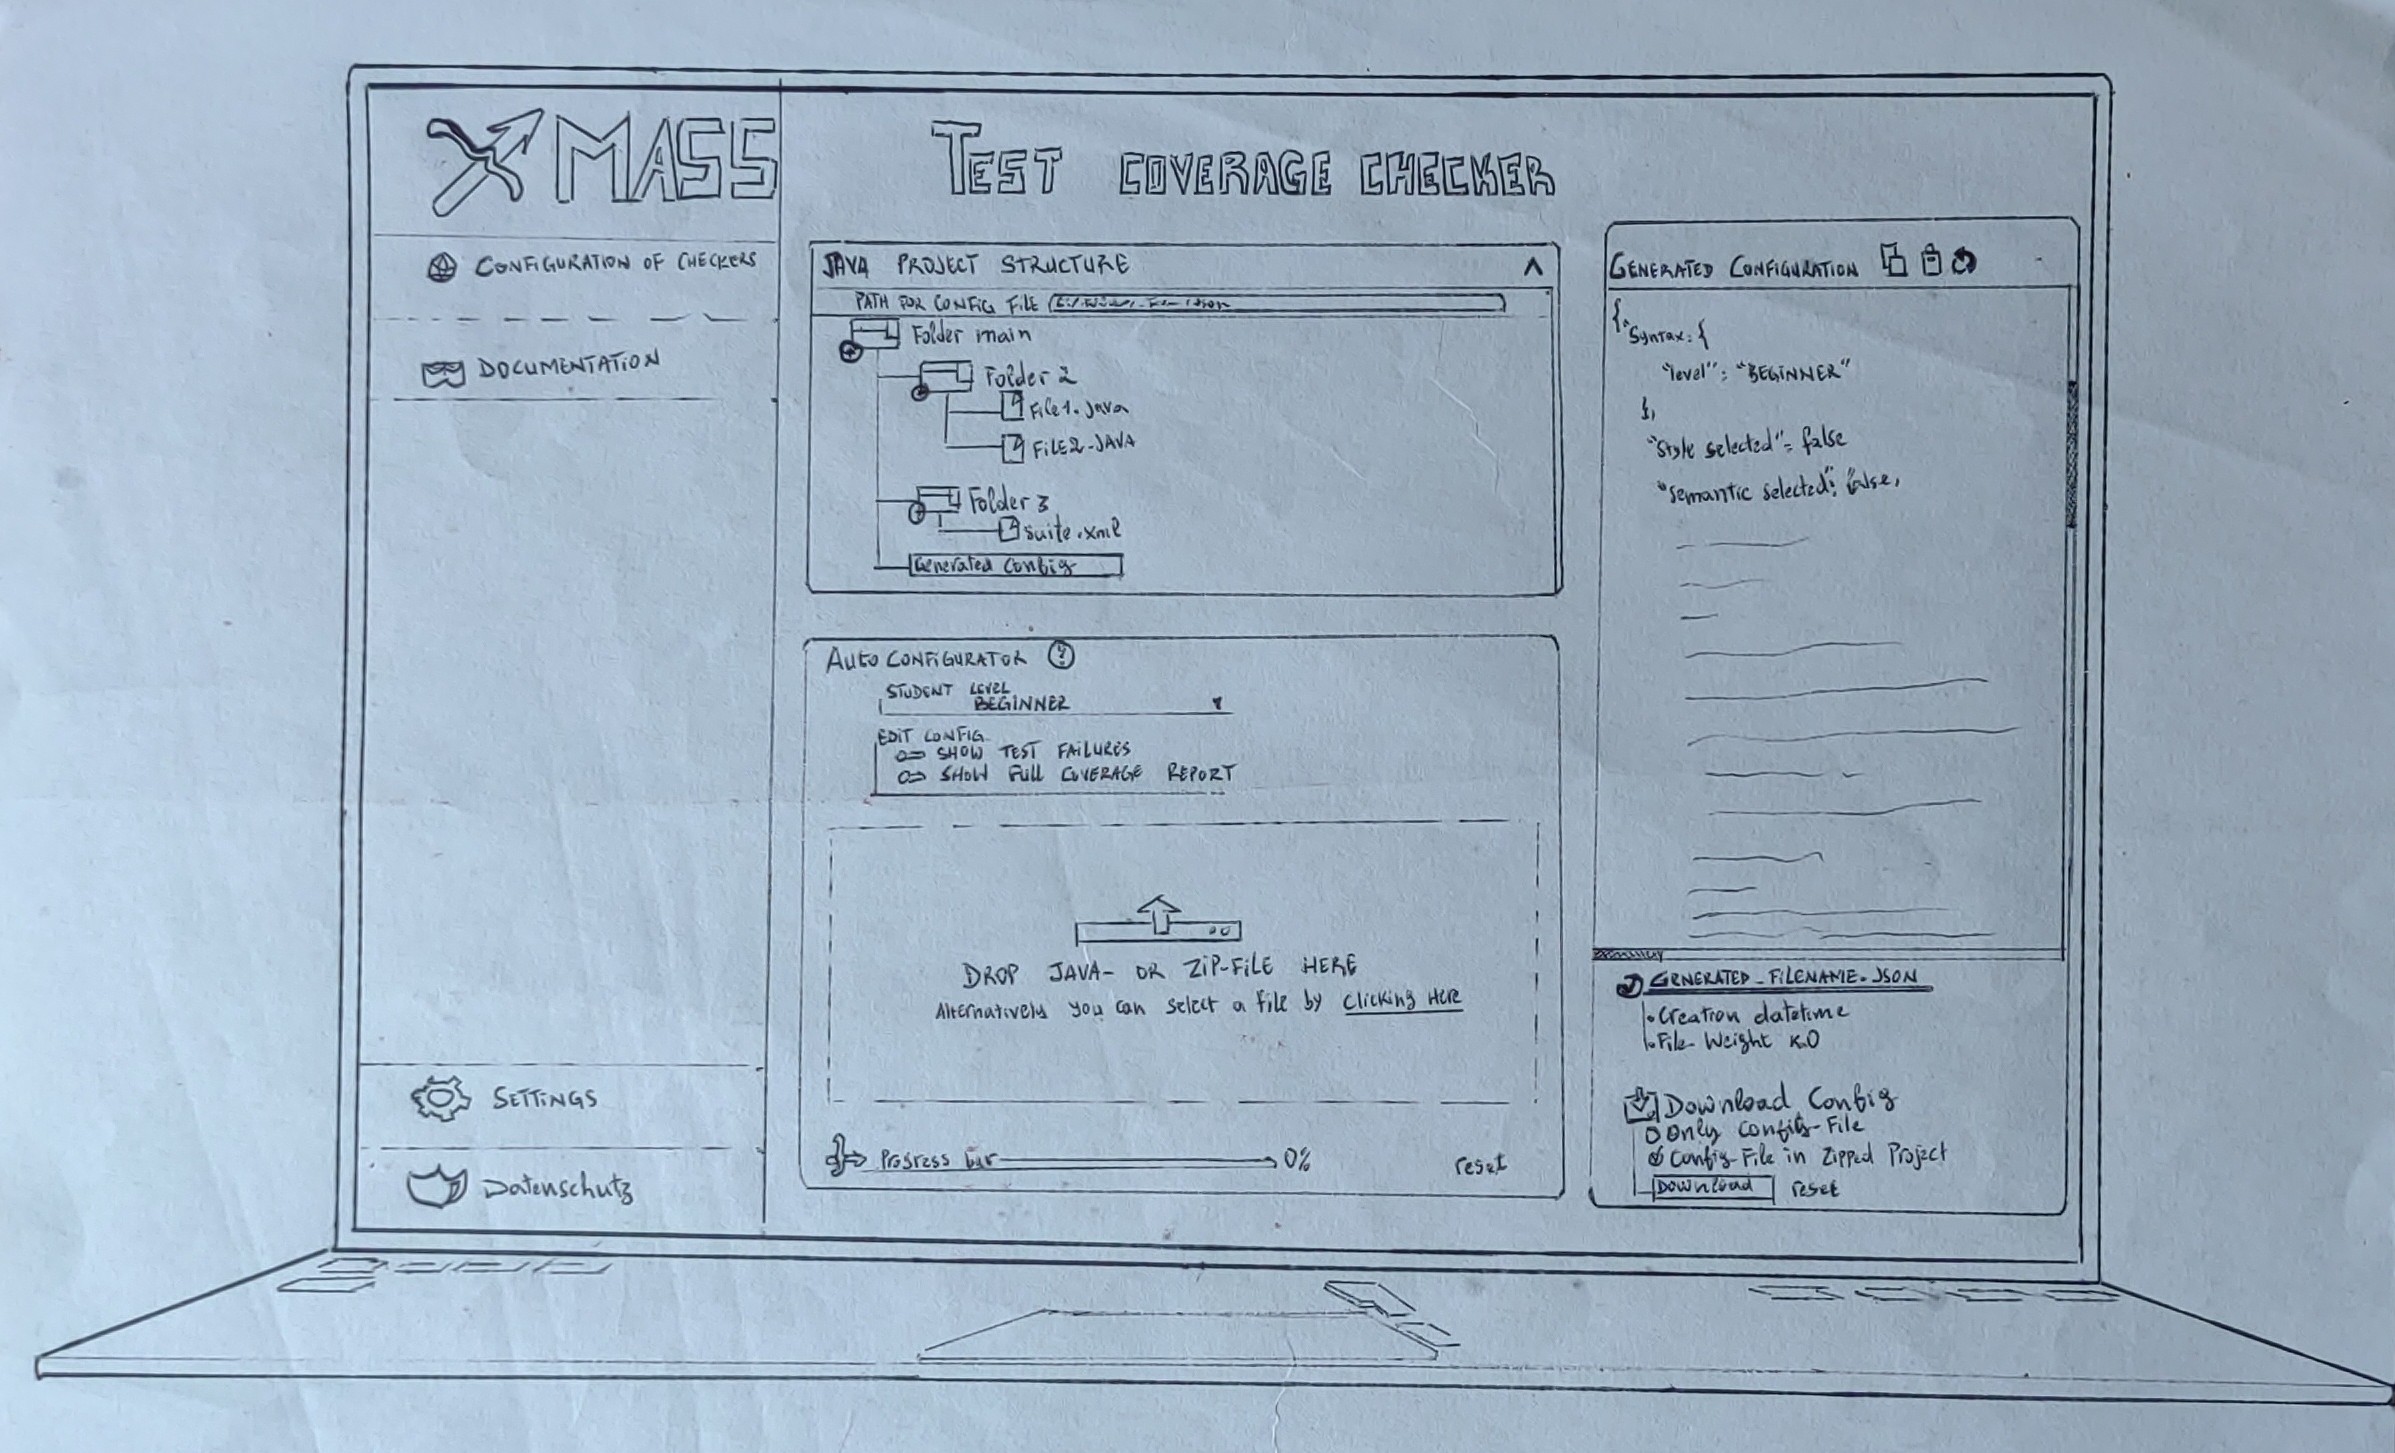 MASS
CONFIGURATION OF CHECKERS
DOCUMENTATION
SETTINGS
Datenschutz
TEST COVERAGE CHECKER
JAVA PROJECT STRUCTURE
PATH FOR CONFIG FILE
Folder main
Folder 2
File1.java
FILE2-JAVA
Folder 3
suite.xml
Generated Config
AUTO CONFIGURATOR ?
STUDENT LEVEL
BEGINNER
EDIT CONFIG
SHOW TEST FAILURES
SHOW FULL COVERAGE REPORT
DROP JAVA- OR ZIP-FILE HERE
Alternatively you can select a file by clicking HERE
Progress bar 0% reset
GENERATED CONFIGURATION
{
"Syntax: {
"level": "BEGINNER"
},
"Style selected"= false
"semantic selected": false,
GENERATED_FILENAME.JSON
• Creation datetime
• File Weight KO
Download Config
Only config-File
Config-File in Zipped Project
DOWNLOAD reset